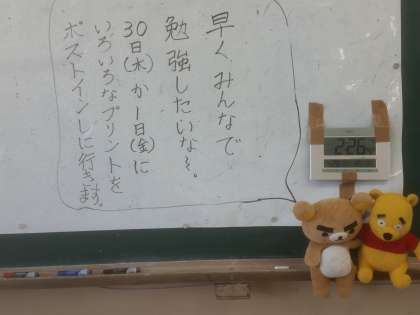 早くみんなで
勉強したいな〜。
30日(木)か1日(金)に
いろいろなプリントを
ポストインしに行きます。
2:26